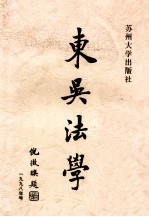 苏州大学出版社
東吳法學
倪徵㠭題
一九九八年四月